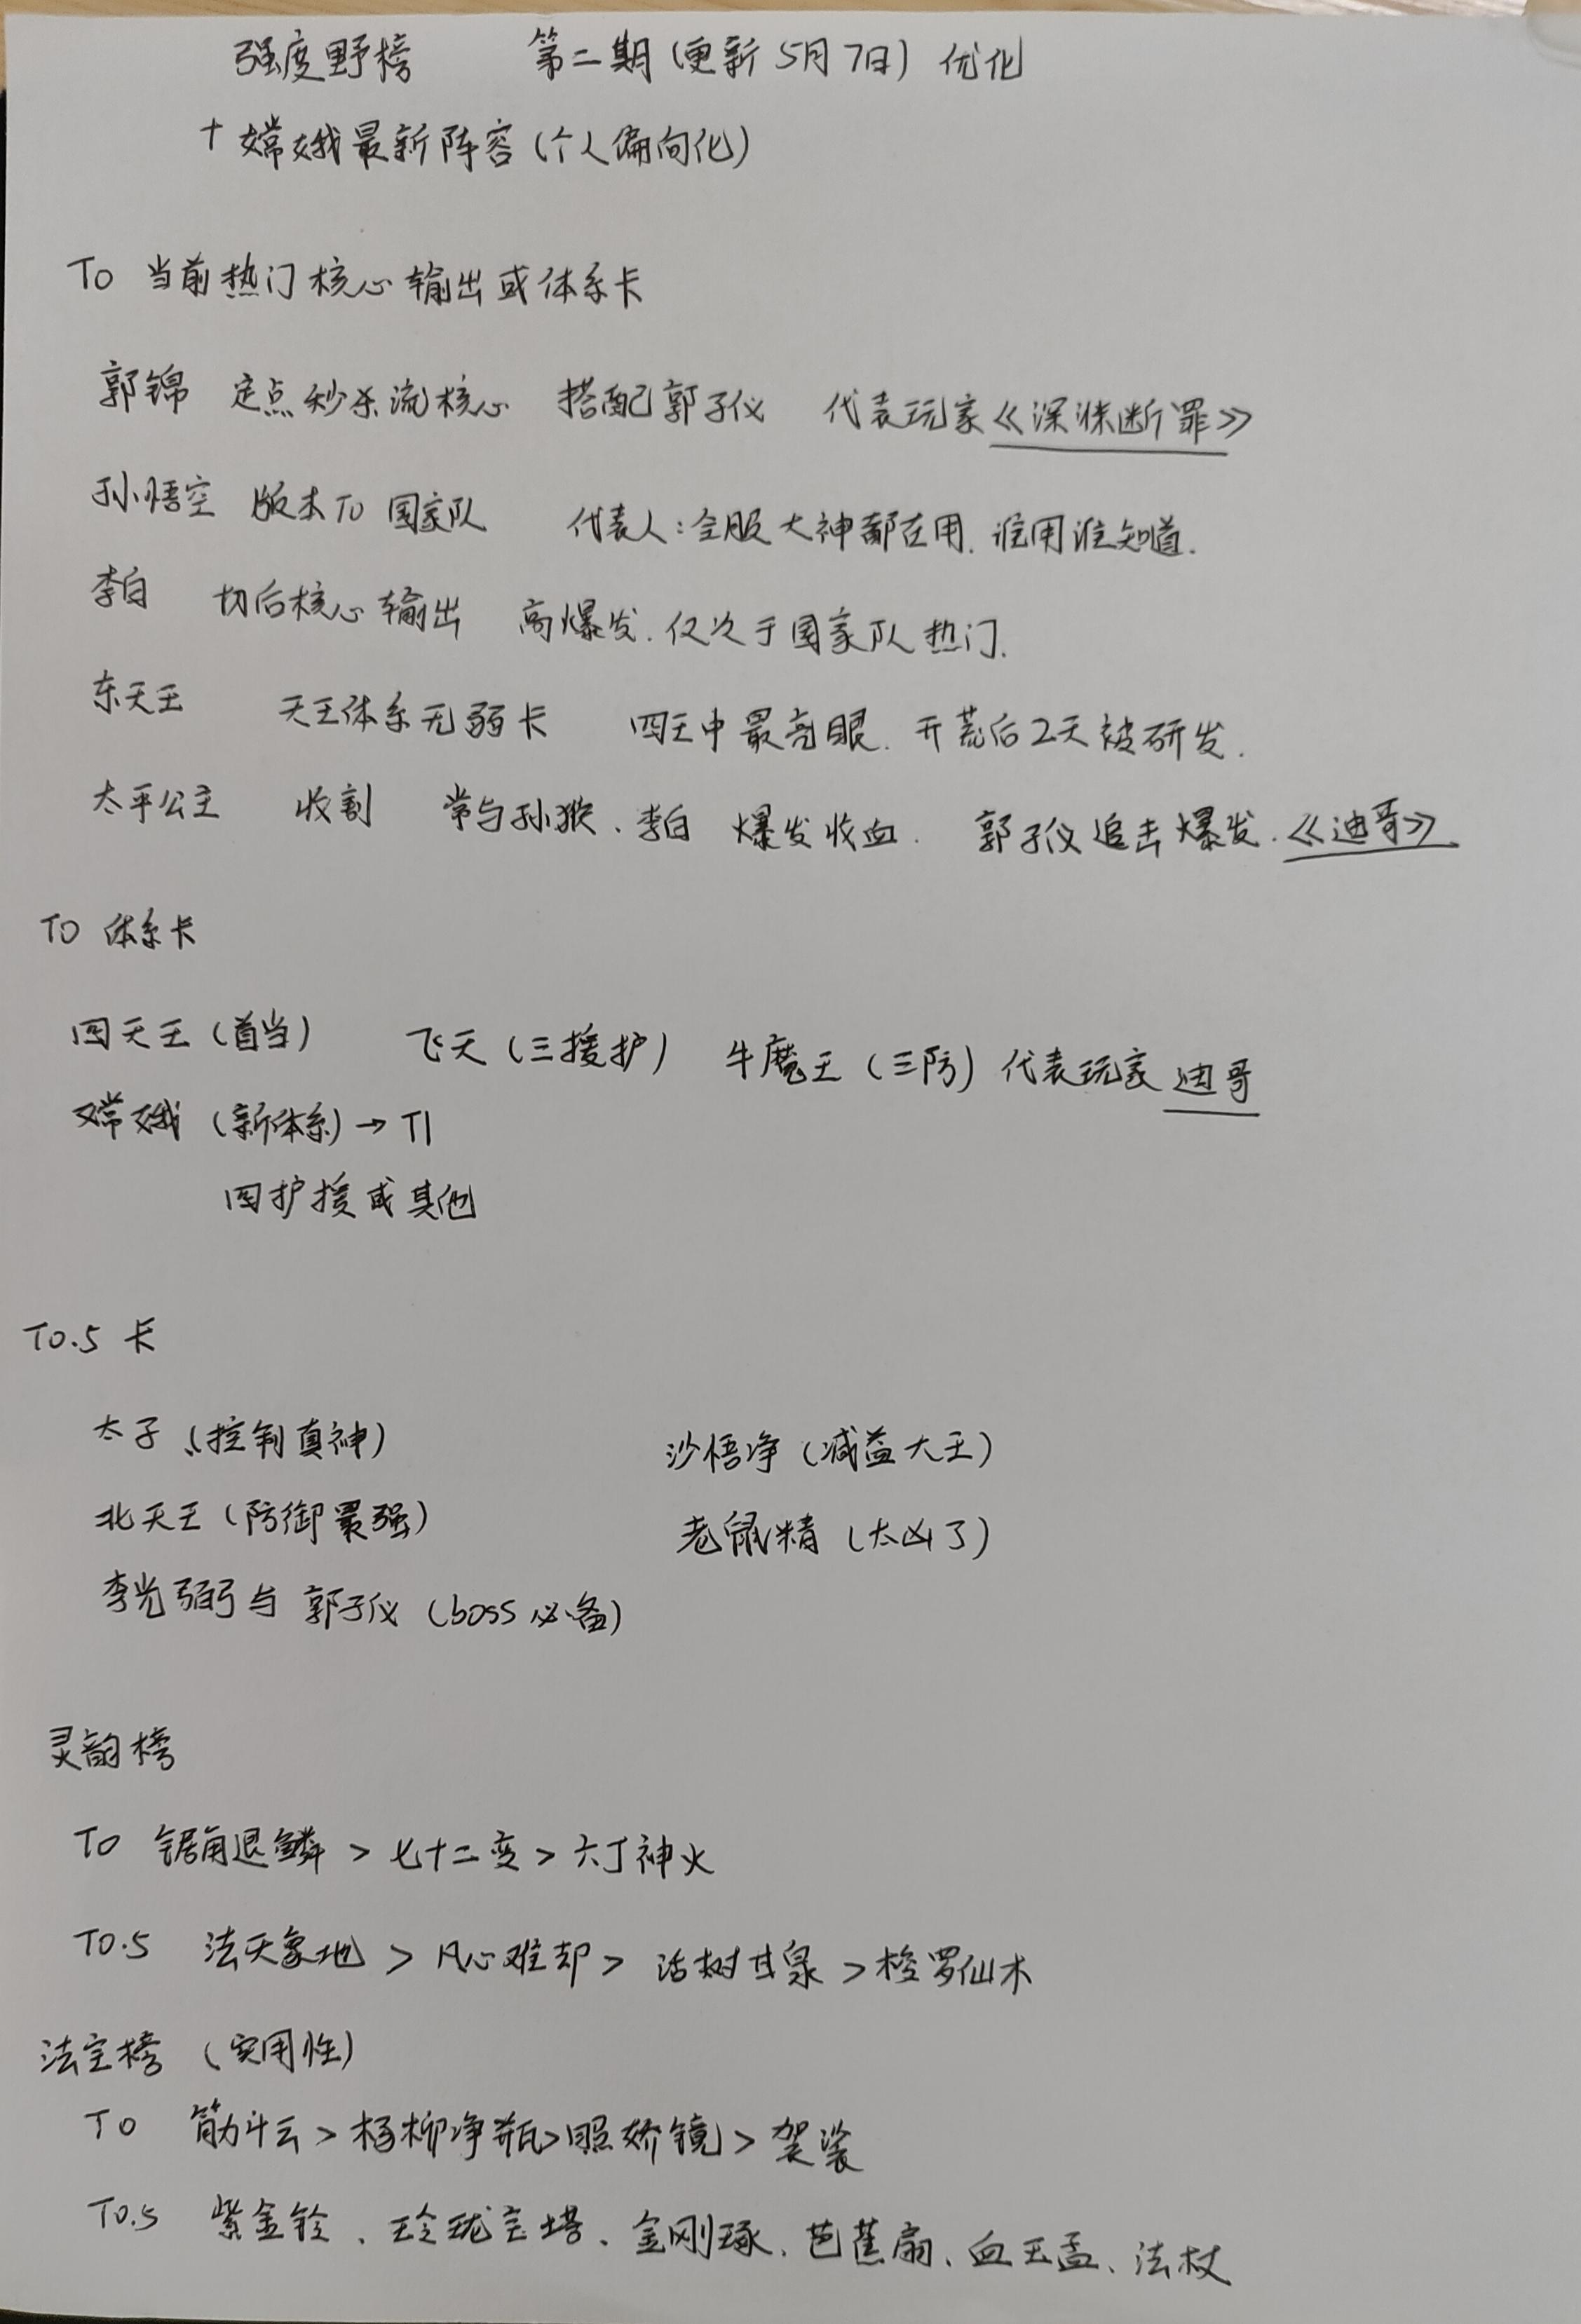 强度野榜 第二期(更新5月7日) 优化
+嫦娥最新阵容(个人偏向化)
T0 当前热门核心输出或体系卡
郭锦 定点秒杀流核心 搭配郭子仪 代表玩家《深渊断罪》
孙悟空 版本T0 国家队 代表人:全服大神都在用.谁用谁知道.
李白 切后核心输出 高爆发.仅次于国家队热门.
东天王 天王体系无弱卡 四王中最亮眼.开荒后2天被研发.
太平公主 收割 常与孙猴、李白 爆发收血. 郭子仪追击爆发.《迪哥》
T0 体系卡
四天王(首当) 飞天(三援护) 牛魔王(三防) 代表玩家 迪哥
嫦娥(新体系)→T1
四护援或其他
T0.5 卡
太子(控制真神) 沙悟净(减益大王)
北天王(防御最强) 老鼠精(太凶了)
李光弼与郭子仪(boss必备)
灵韵榜
T0 锯角退鳞>七十二变>六丁神火
T0.5 法天象地>凡心难却>活树甘泉>梭罗仙木
法宝榜(实用性)
T0 筋斗云>杨柳净瓶>照娇镜>袈裟
T0.5 紫金铃、玲珑宝塔、金刚琢、芭蕉扇、血玉盂、法杖